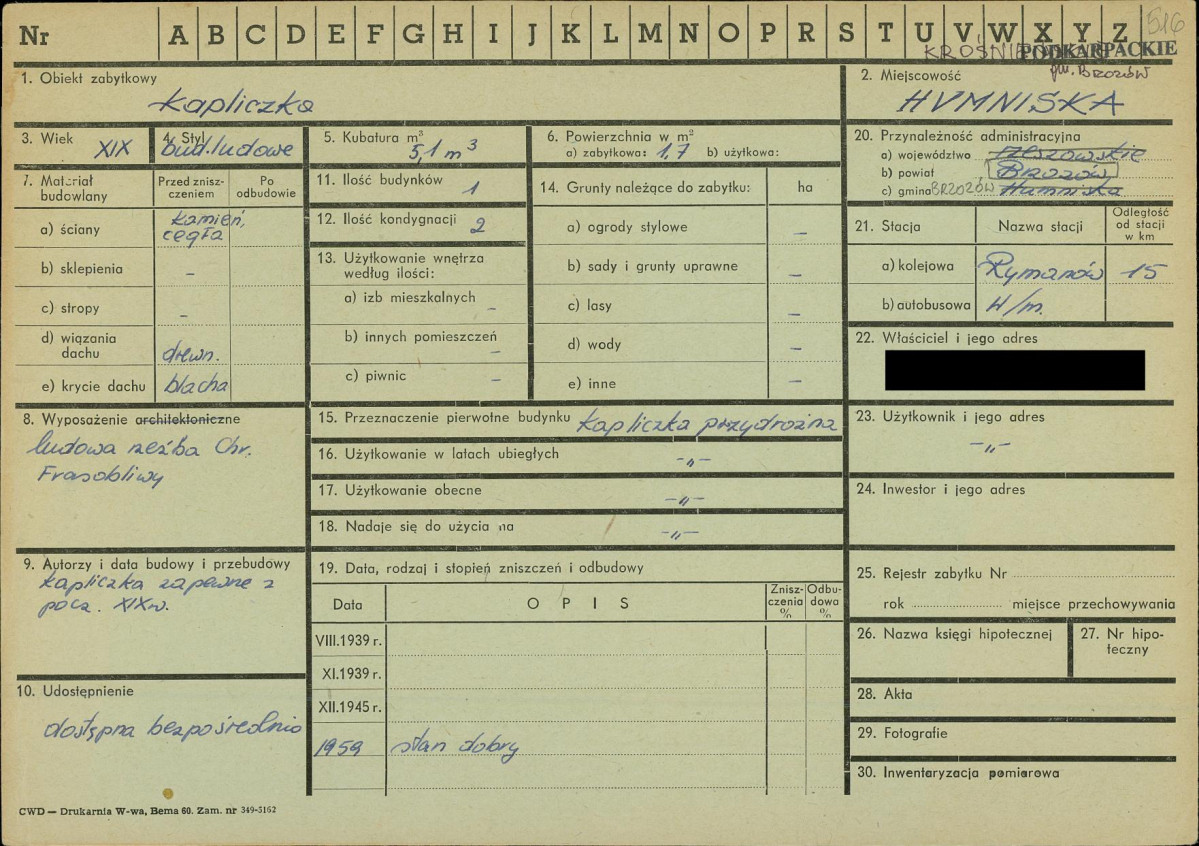 516
Nr A B C D E F G H I J K L M N O P R S T U V W X Y Z
PODKARPACKIE
gm. BRZOZÓW
1. Obiekt zabytkowy
Kapliczka
2. Miejscowość
HUMNISKA
3. Wiek XIX
4. Styl bud. ludowe
5. Kubatura m³
5,1 m³
6. Powierzchnia w m²
a) zabytkowa: 1,7 b) użytkowa:
20. Przynależność administracyjna
a) województwo rzeszowskie
b) powiat Brzozów
c) gmina BRZOZÓW Humniska
7. Materiał budowlany
Przed zniszczeniem
Po odbudowie
a) ściany kamień, cegła
b) sklepienia –
c) stropy –
d) wiązania dachu drewn.
e) krycie dachu blacha
11. Ilość budynków 1
12. Ilość kondygnacji 2
13. Użytkowanie wnętrza według ilości:
a) izb mieszkalnych –
b) innych pomieszczeń –
c) piwnic –
14. Grunty należące do zabytku: ha
a) ogrody stylowe –
b) sady i grunty uprawne –
c) lasy –
d) wody –
e) inne –
21. Stacja Nazwa stacji Odległość od stacji w km
a) kolejowa Rymanów 15
b) autobusowa w/m.
22. Właściciel i jego adres
8. Wyposażenie architektoniczne
ludowa rzeźba Chr.
Frasobliwy
15. Przeznaczenie pierwotne budynku kapliczka przydrożna
16. Użytkowanie w latach ubiegłych –„–
17. Użytkowanie obecne –„–
18. Nadaje się do użycia na –„–
23. Użytkownik i jego adres
–„–
24. Inwestor i jego adres
9. Autorzy i data budowy i przebudowy
kapliczka zapewne z
pocz. XIX w.
19. Data, rodzaj i stopień zniszczeń i odbudowy
Data OPIS Zniszczenia % Odbudowa %
VIII.1939 r.
XI.1939 r.
XII.1945 r.
1959 stan dobry
25. Rejestr zabytku Nr
rok miejsce przechowywania
26. Nazwa księgi hipotecznej
27. Nr hipoteczny
10. Udostępnienie
dostępna bezpośrednio
28. Akta
29. Fotografie
30. Inwentaryzacja pomiarowa
CWD — Drukarnia W-wa, Bema 60. Zam. nr 349-5162